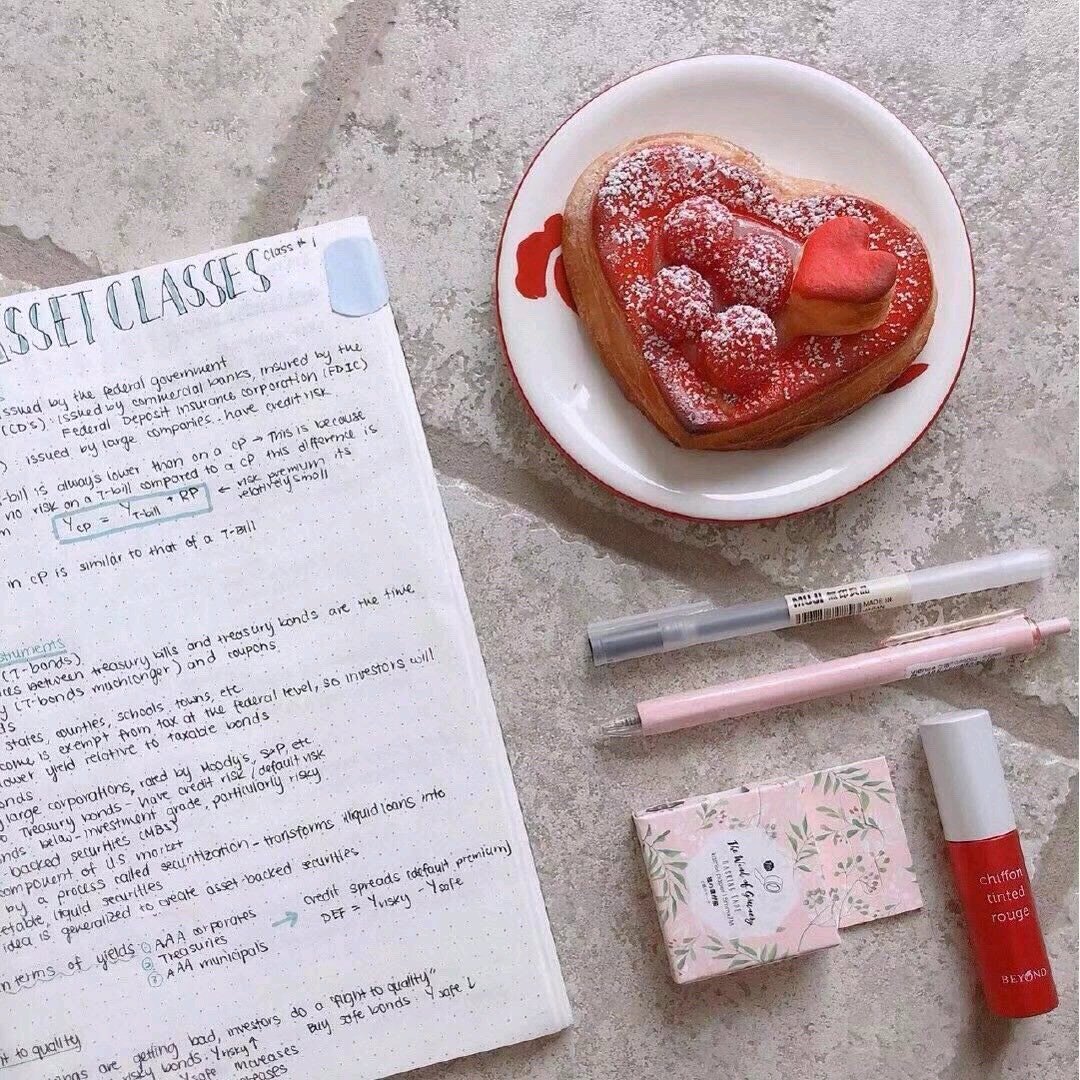 ASSET CLASSES
class #1
issued by the federal government
(CD's): issued by commercial banks, insured by the
Federal Deposit Insurance Corporation (FDIC)
): issued by large companies ∴ have credit risk
-bill is always lower than on a CP → This is because
no risk on a T-bill compared to a CP this difference is
Y CP = Y T-bill + RP ← risk premium, its
relatively small
in CP is similar to that of a T-Bill
struments
(T-bonds)
ces between treasury bills and treasury bonds are the time
y (T-bonds much longer) and coupons
states, counties, schools, towns, etc
come is exempt from tax at the federal level, so investors will
lower yield relative to taxable bonds
onds
y large corporations, rated by Moody's, S&P, etc
o Treasury bonds - have credit risk / default risk
nds, below-investment grade, particularly risky
-backed securities (MBS)
component of U.S. market
by a process called securitization - transforms illiquid loans into
etable, liquid securities
idea is generalized to create asset-backed securities
in terms of yields: ① AAA corporates
② Treasuries
③ AAA municipals
→ credit spreads (default premium)
DEF = Y risky - Y safe
ht to quality
ings are getting bad, investors do a "flight to quality"
risky bonds. Y risky ↑ Buy safe bonds Y safe ↓
Y safe increases
MUJI 無印良品
MADE IN
JAPAN
chiffon
tinted
rouge
BEYOND